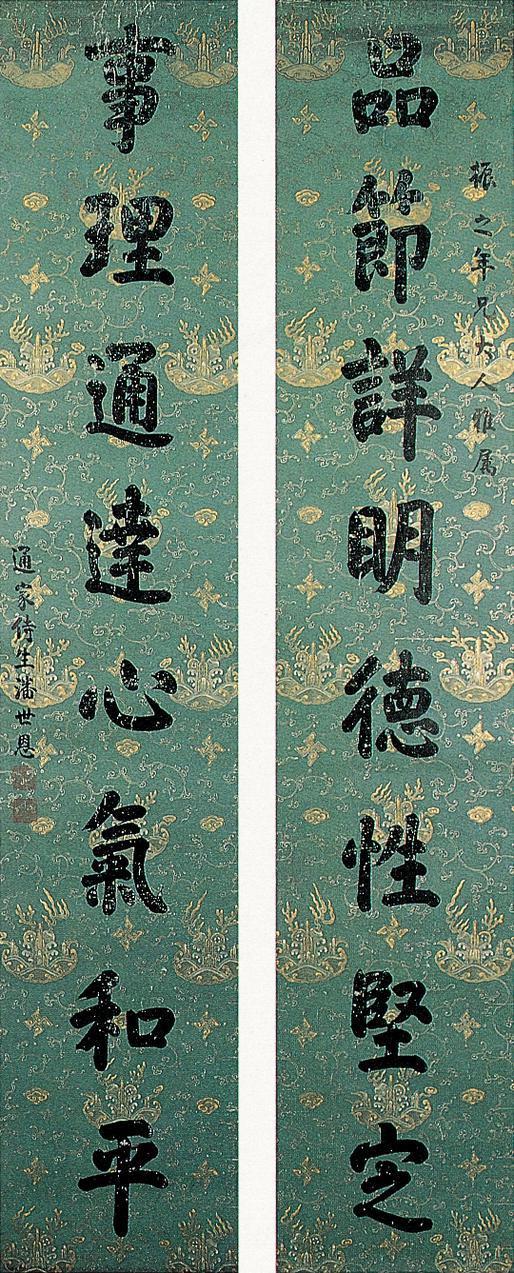 振之年兄大人雅属
品節詳明德性堅定
事理通達心氣和平
通家侍生潘世恩